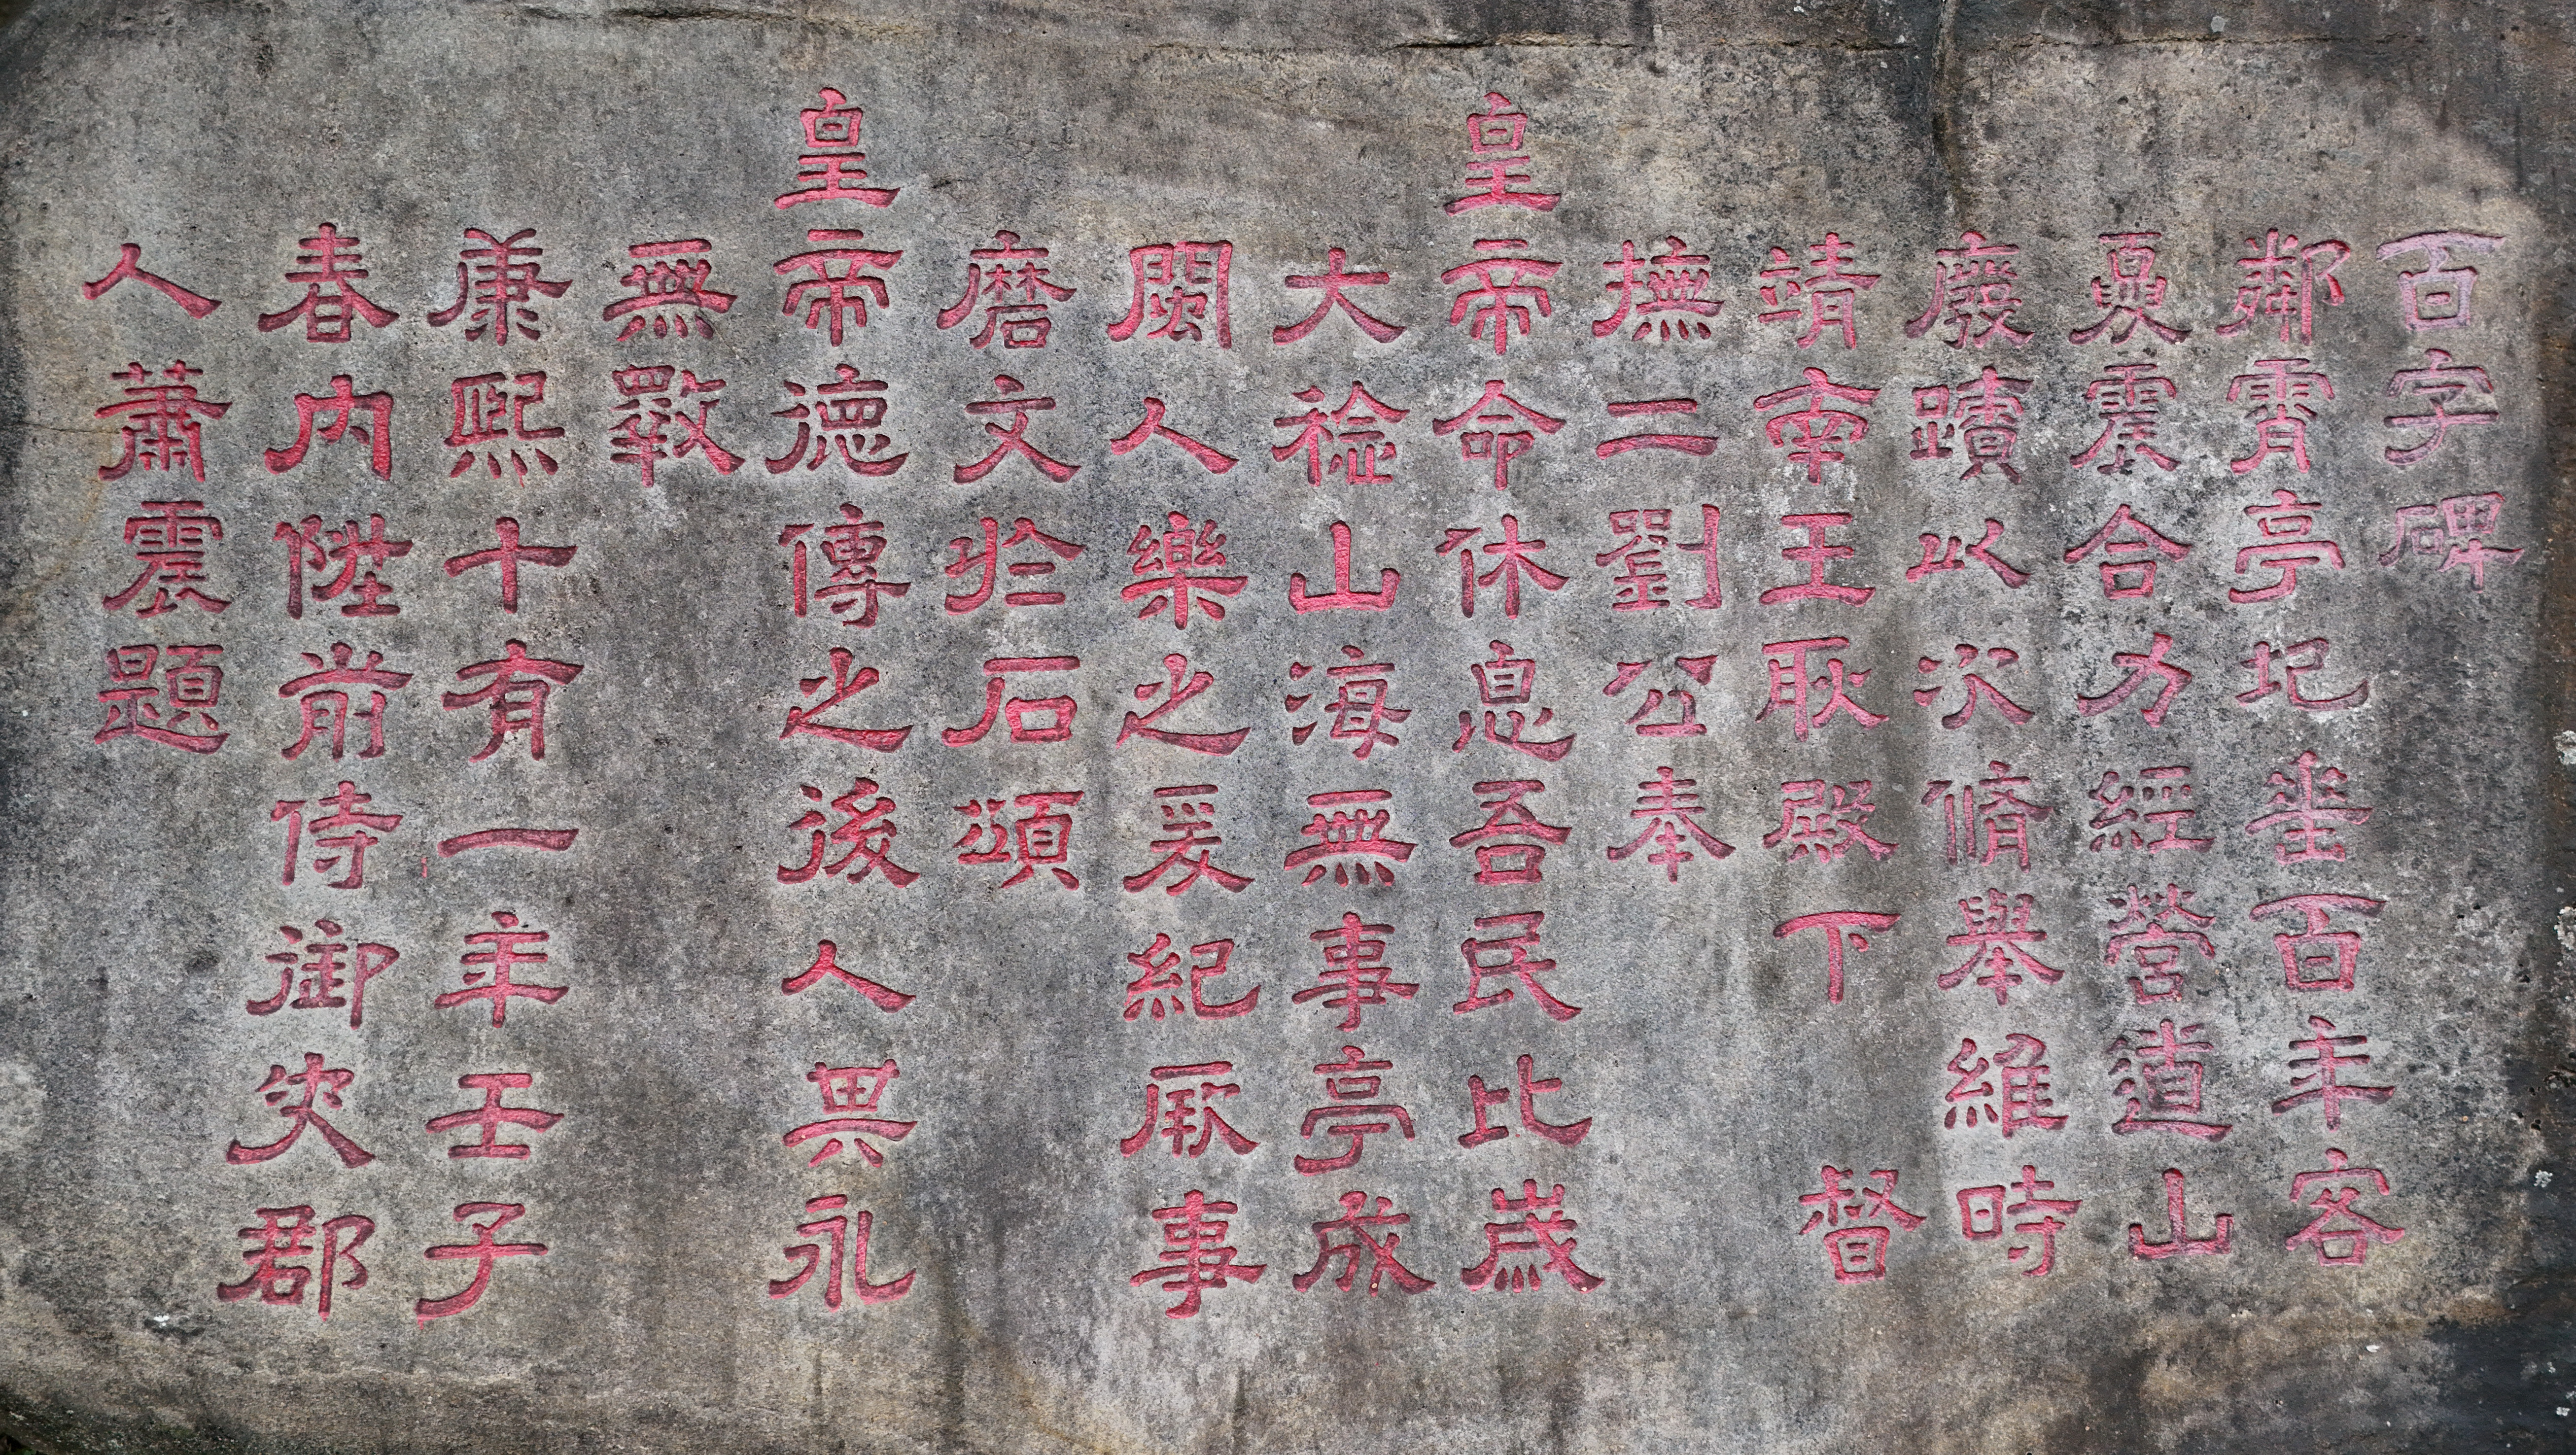 百字碑
鄰霄亭圮垂百年客
夏震合力經營道山
廢蹟以次脩舉維時
靖南王耿殿下　督
撫二劉公奉
皇帝命休息吾民比歲
大稔山海無事亭成
閩人樂之爰紀厥事
磨文於石頌
皇帝德傳之後人畀永
無斁
康熙十有一年壬子
春內陞前侍御史郡
人蕭震題